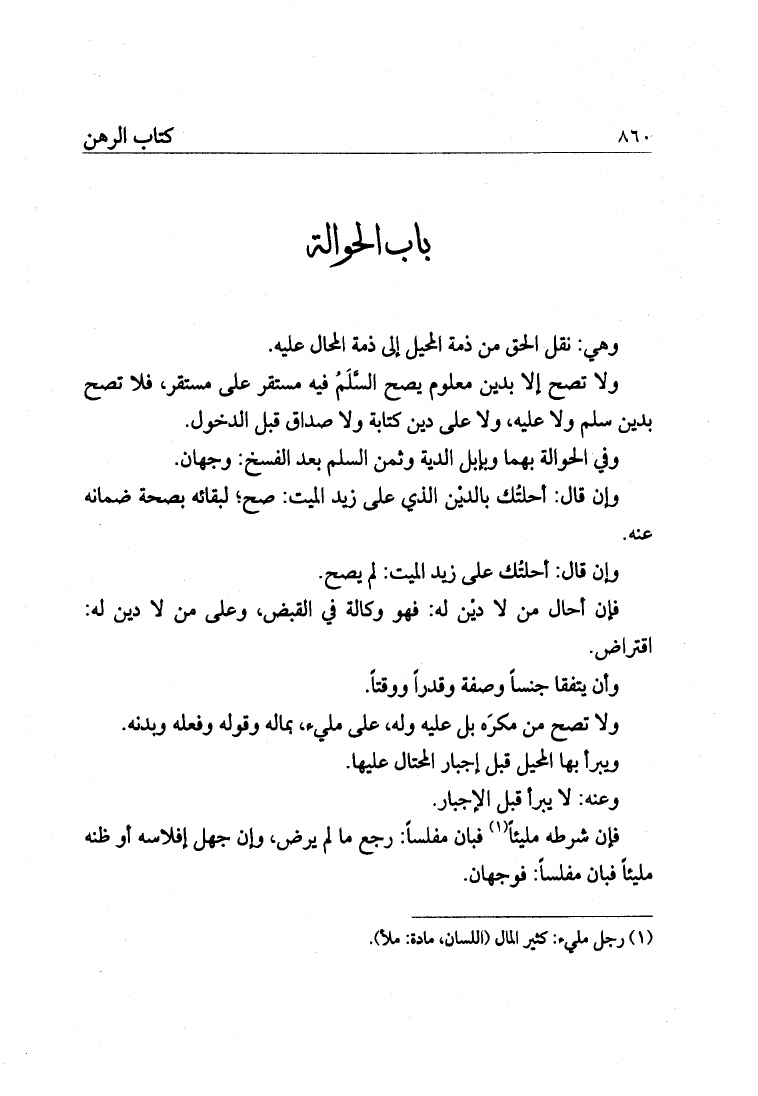 ٨٦٠ كتاب الرهن
باب الحوالة
وهي: نقل الحق من ذمة المحيل إلى ذمة المحال عليه.
ولا تصح إلا بدين معلوم يصح السَّلَمُ فيه مستقر على مستقر، فلا تصح
بدين سلم ولا عليه، ولا على دين كتابة ولا صداق قبل الدخول.
وفي الحوالة بهما وبإبل الدية وثمن السلم بعد الفسخ: وجهان.
وإن قال: أحلتُك بالديْن الذي على زيد الميت: صح؛ لبقائه بصحة ضمانه
عنه.
وإن قال: أحلتُك على زيد الميت: لم يصح.
فإن أحال من لا ديْن له: فهو وكالة في القبض، وعلى من لا دين له:
اقتراض.
وأن يتفقا جنساً وصفة وقدراً ووقتاً.
ولا تصح من مكرَه بل عليه وله، على مليء، بماله وقوله وفعله وبدنه.
ويبرأ بها المحيل قبل إجبار المحتال عليها.
وعنه: لا يبرأ قبل الإجبار.
فإن شرطه مليئاً(١) فبان مفلساً: رجع ما لم يرض، وإن جهل إفلاسه أو ظنه
مليئاً فبان مفلساً: فوجهان.
(١) رجل مليء: كثير المال (اللسان، مادة: ملأ).